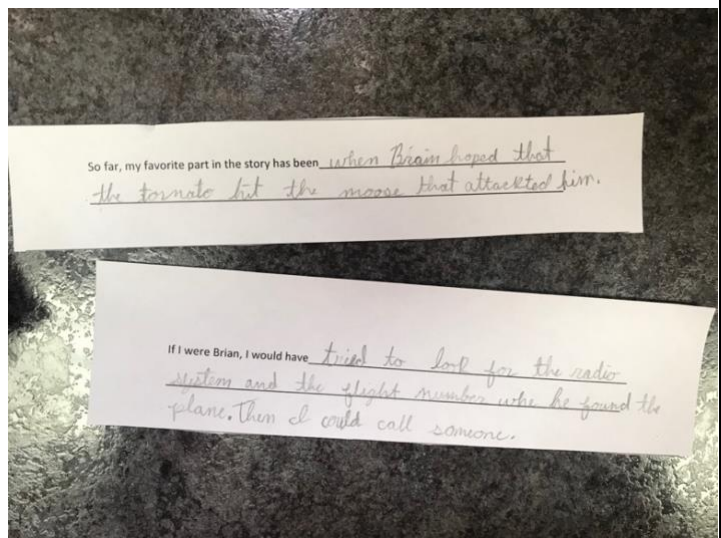 So far, my favorite part in the story has been when Brain hoped that
the tornato hit the moose that attackted him.
If I were Brian, I would have tried to look for the radio
sistem and the flight number whe he found the
plane. Then I could call someone.